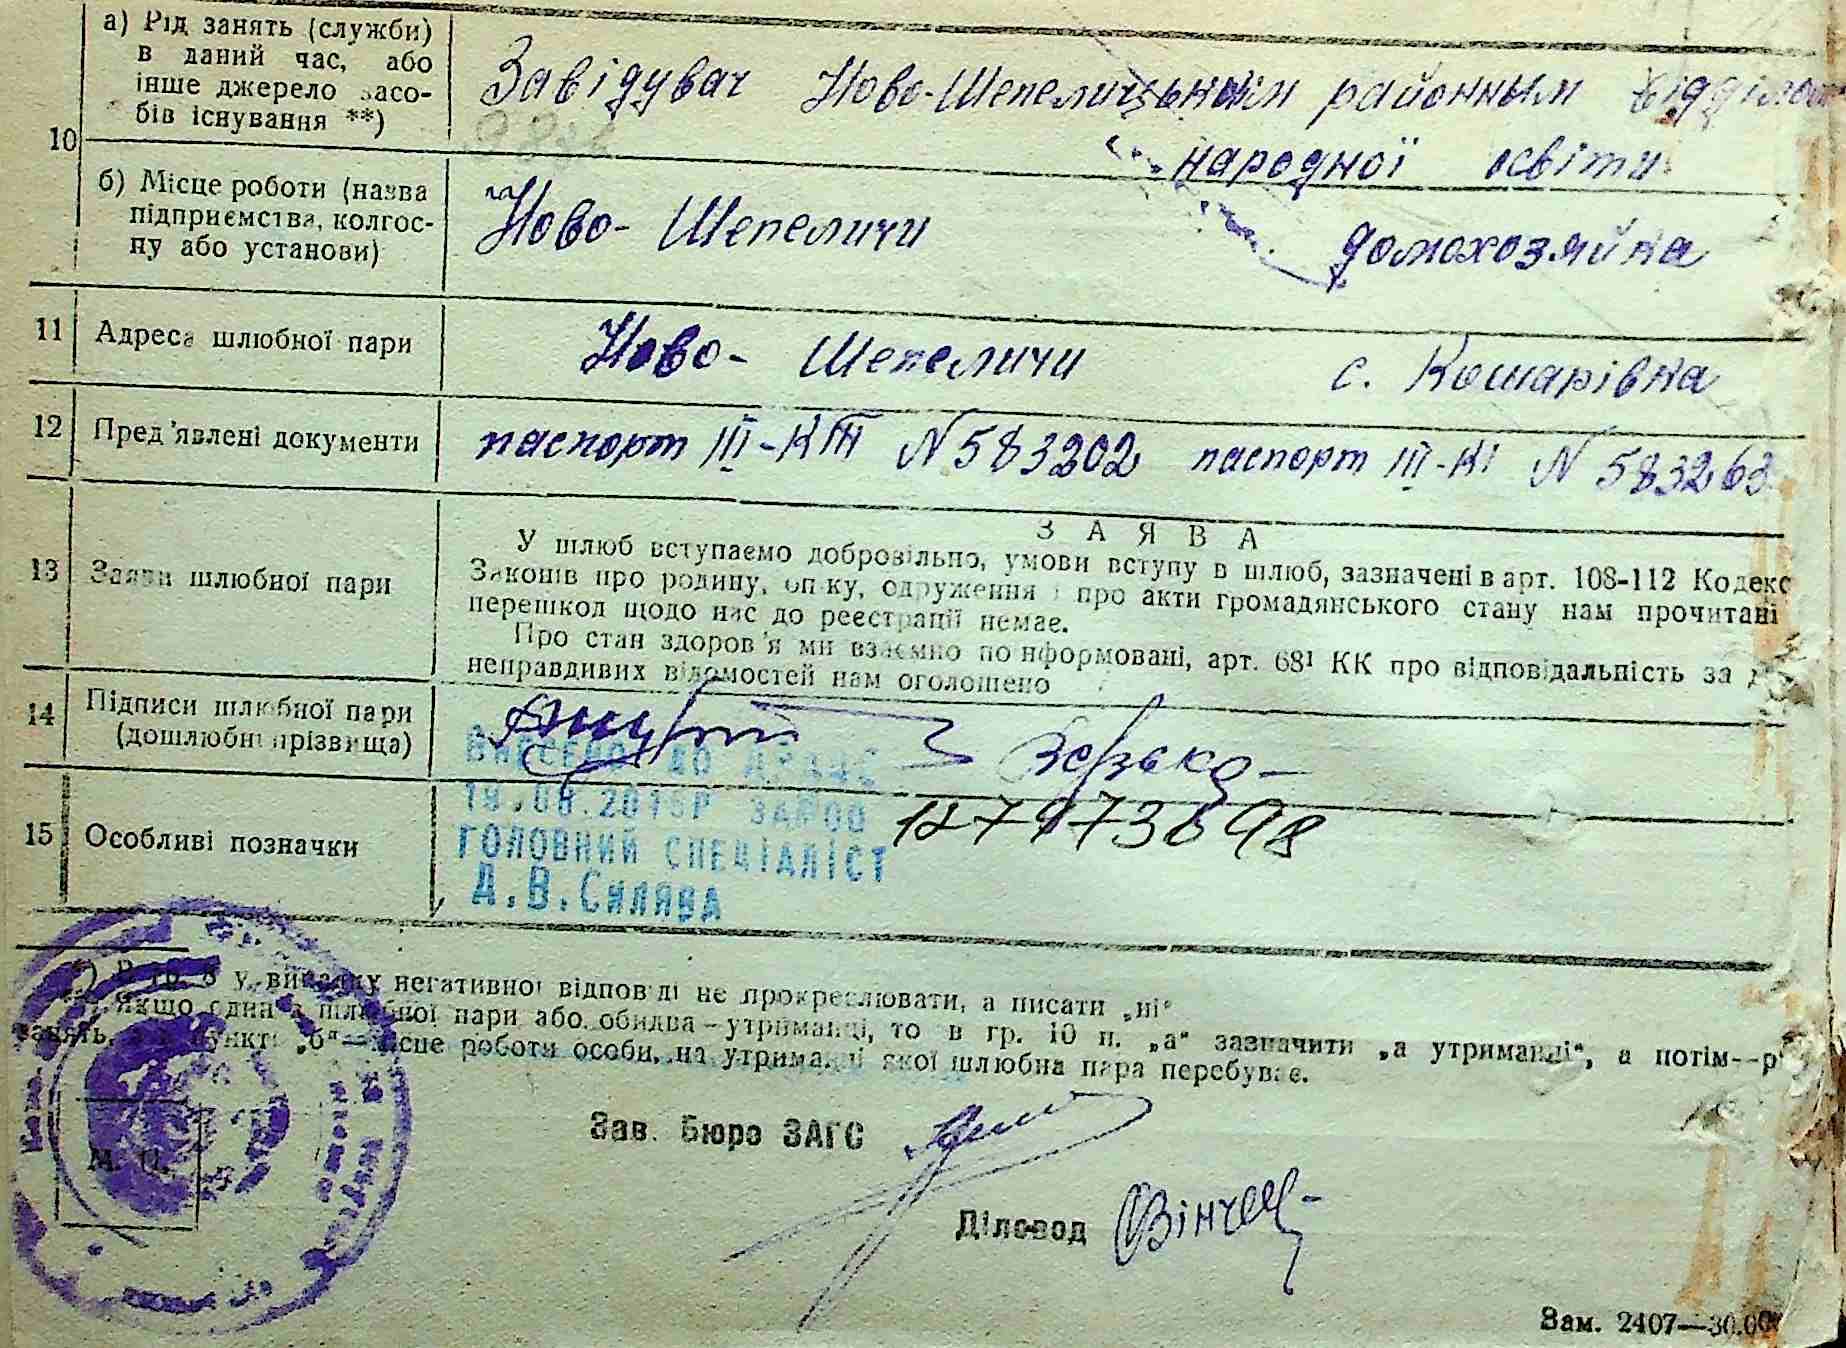 а) Рід занять (служби)
в даний час, або
інше джерело засо-
бів існування **)
Завідувач Ново-Шепелицьким районным відділом
народної освіти
10
б) Місце роботи (назва
підприємства, колгос-
пу або установи)
Ново-Шепеличи
домохозяйка
11 Адреса шлюбної пари
Ново-Шепеличи с. Кошарівка
12 Пред'явлені документи
паспорт III-КТ N 583202 паспорт III-КІ N 583263
13 Заяви шлюбної пари
ЗАЯВА
У шлюб вступаємо добровільно, умови вступу в шлюб, зазначені в арт. 108-112 Кодекс
Законів про родину, опіку, одруження і про акти громадянського стану нам прочитані
перешкод щодо нас до реєстрації немає.
Про стан здоров'я ми взаємно поінформовані, арт. 68¹ КК про відповідальність за
неправдивих відомостей нам оголошено
14 Підписи шлюбної пари
(дошлюбні прізвища)
Зєзько
ВНЕСЕНО ДО ДРАЦС
19.08.2015Р
ГОЛОВНИЙ СПЕЦІАЛІСТ
Д.В.Силява
15 Особливі позначки
*) В гр. 8 у випадку негативної відповіді не прокреслювати, а писати „ні"
Якщо один з шлюбної пари або обидва—утриманці, то в гр. 10 п. „а" зазначити „а утриманці", а потім—р
занять, а в пункті „б"—місце роботи особи, на утриманні якої шлюбна пара перебуває.
Зав. Бюро ЗАГС
М. П.
Діловод
Зам. 2407—30.000